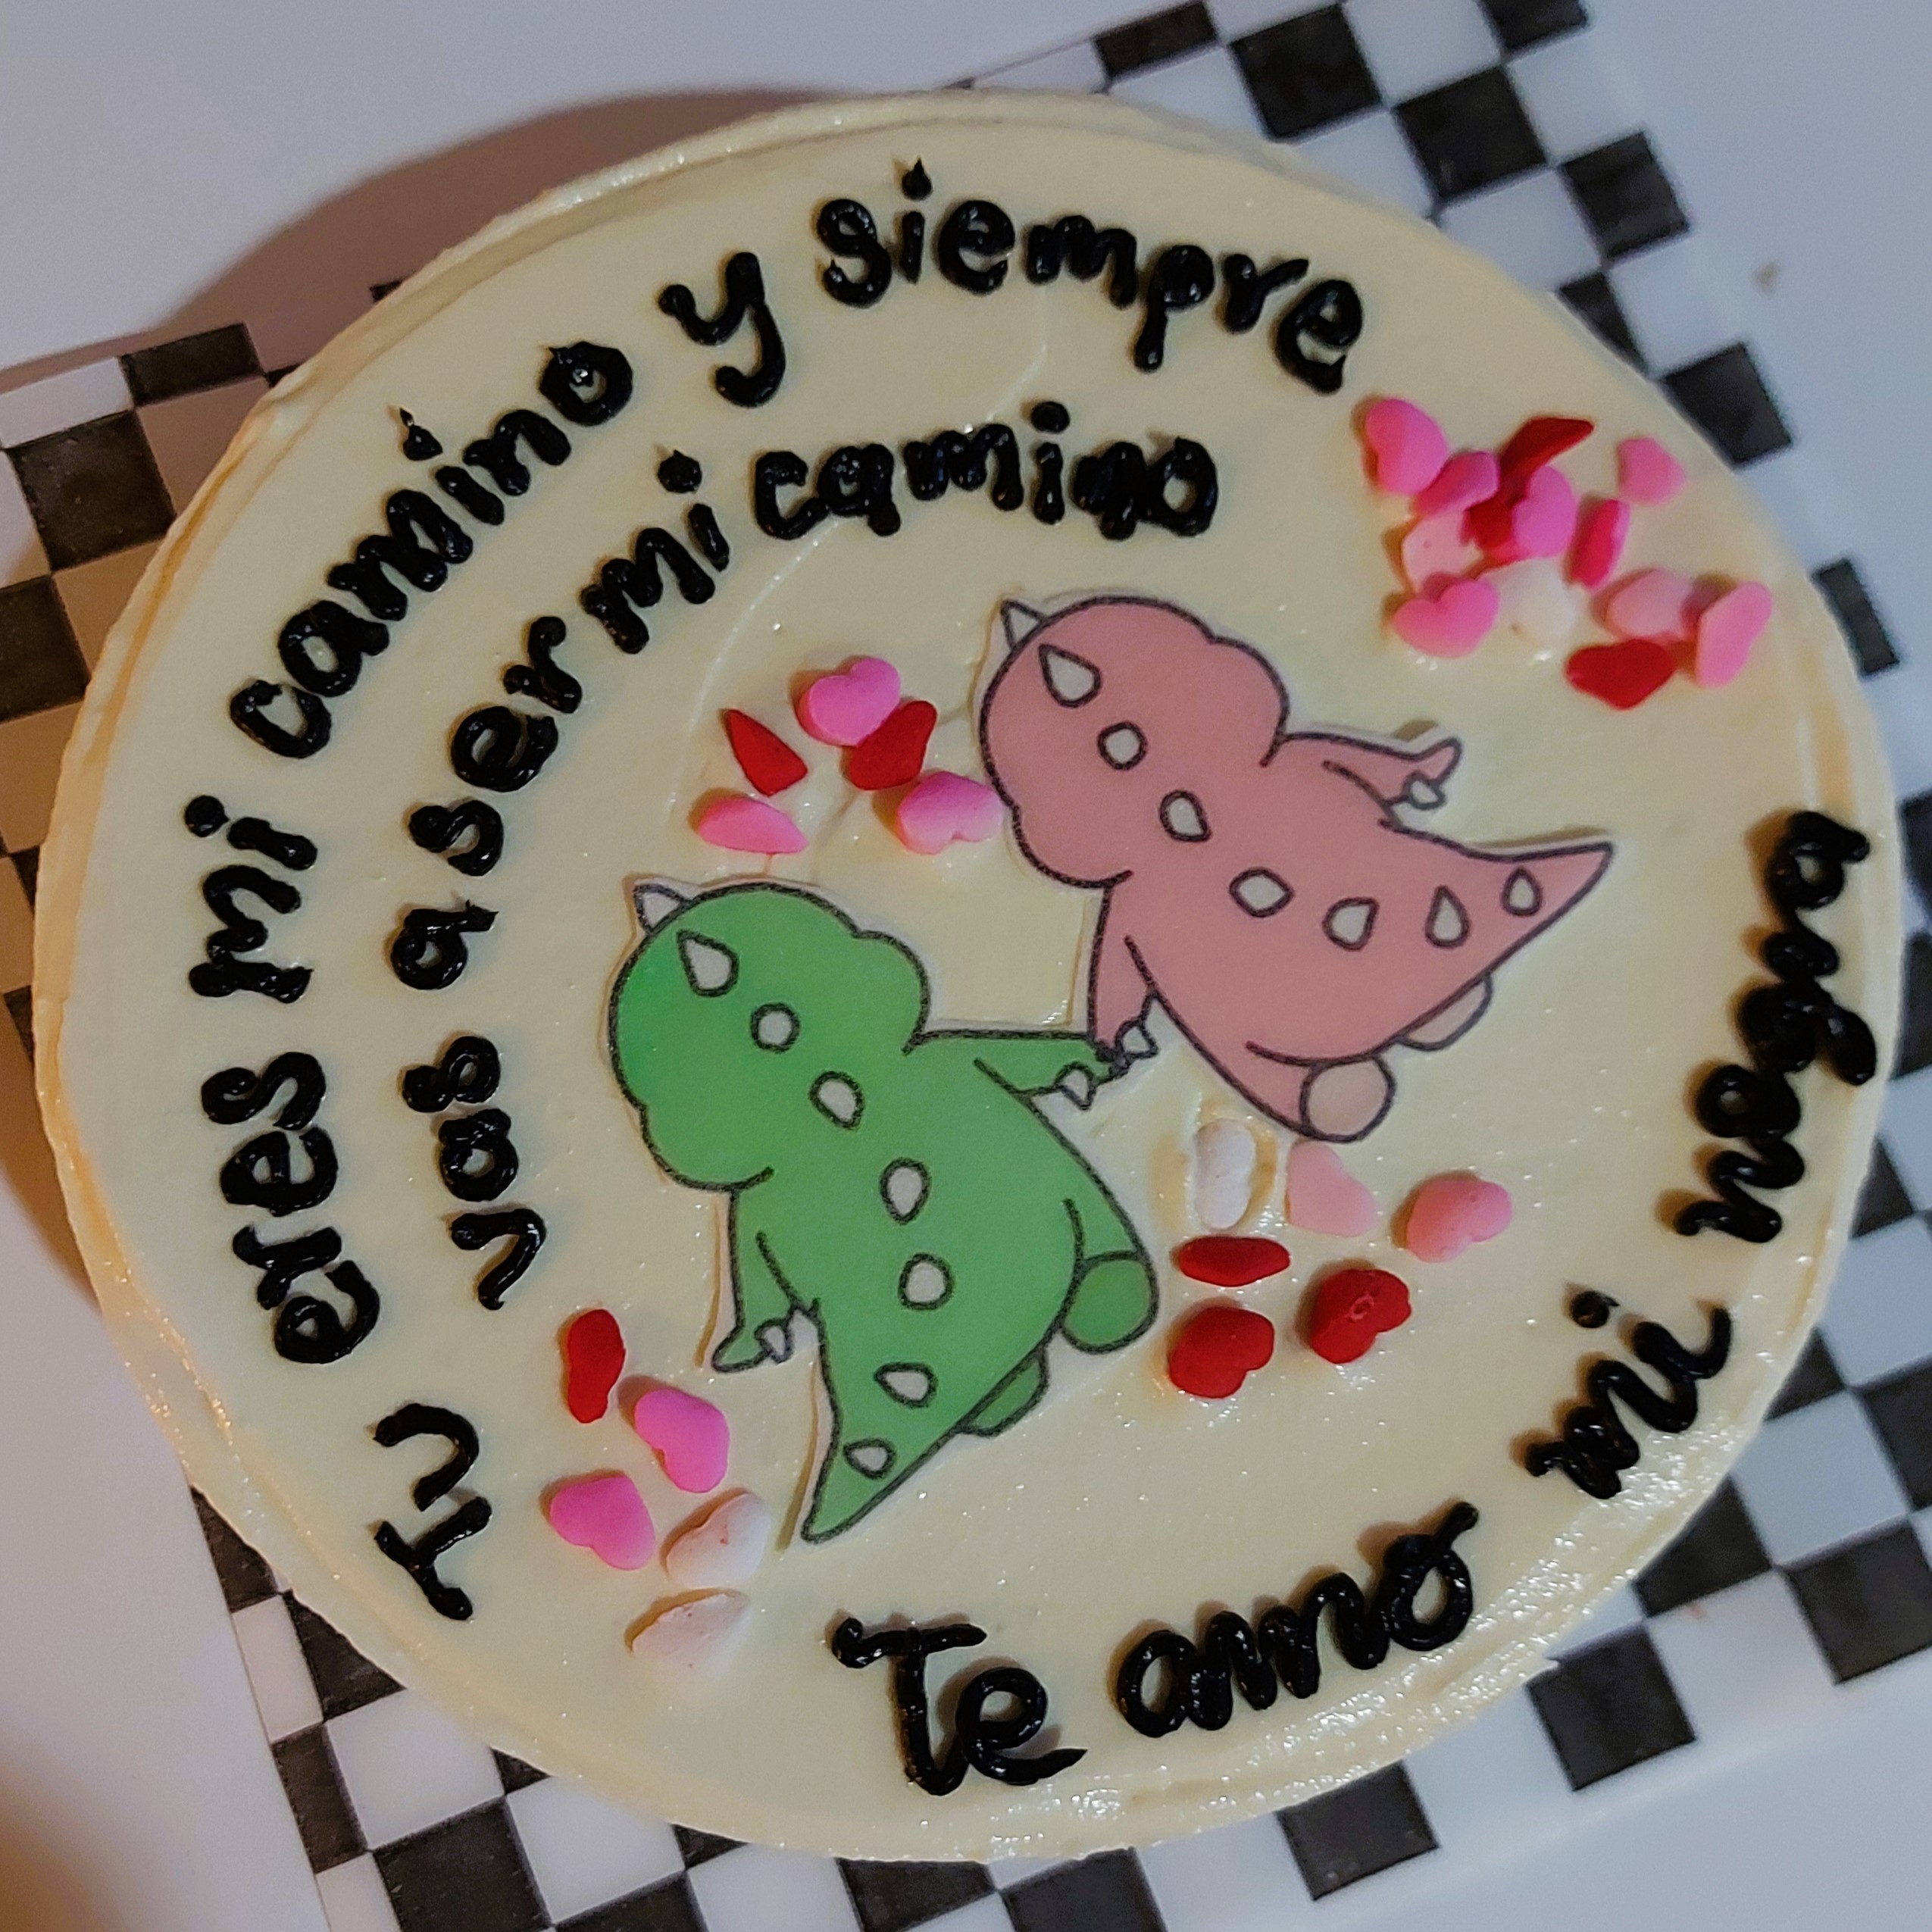 Tu eres mi camino y siempre
vas a ser mi camino
Te amo mi negra